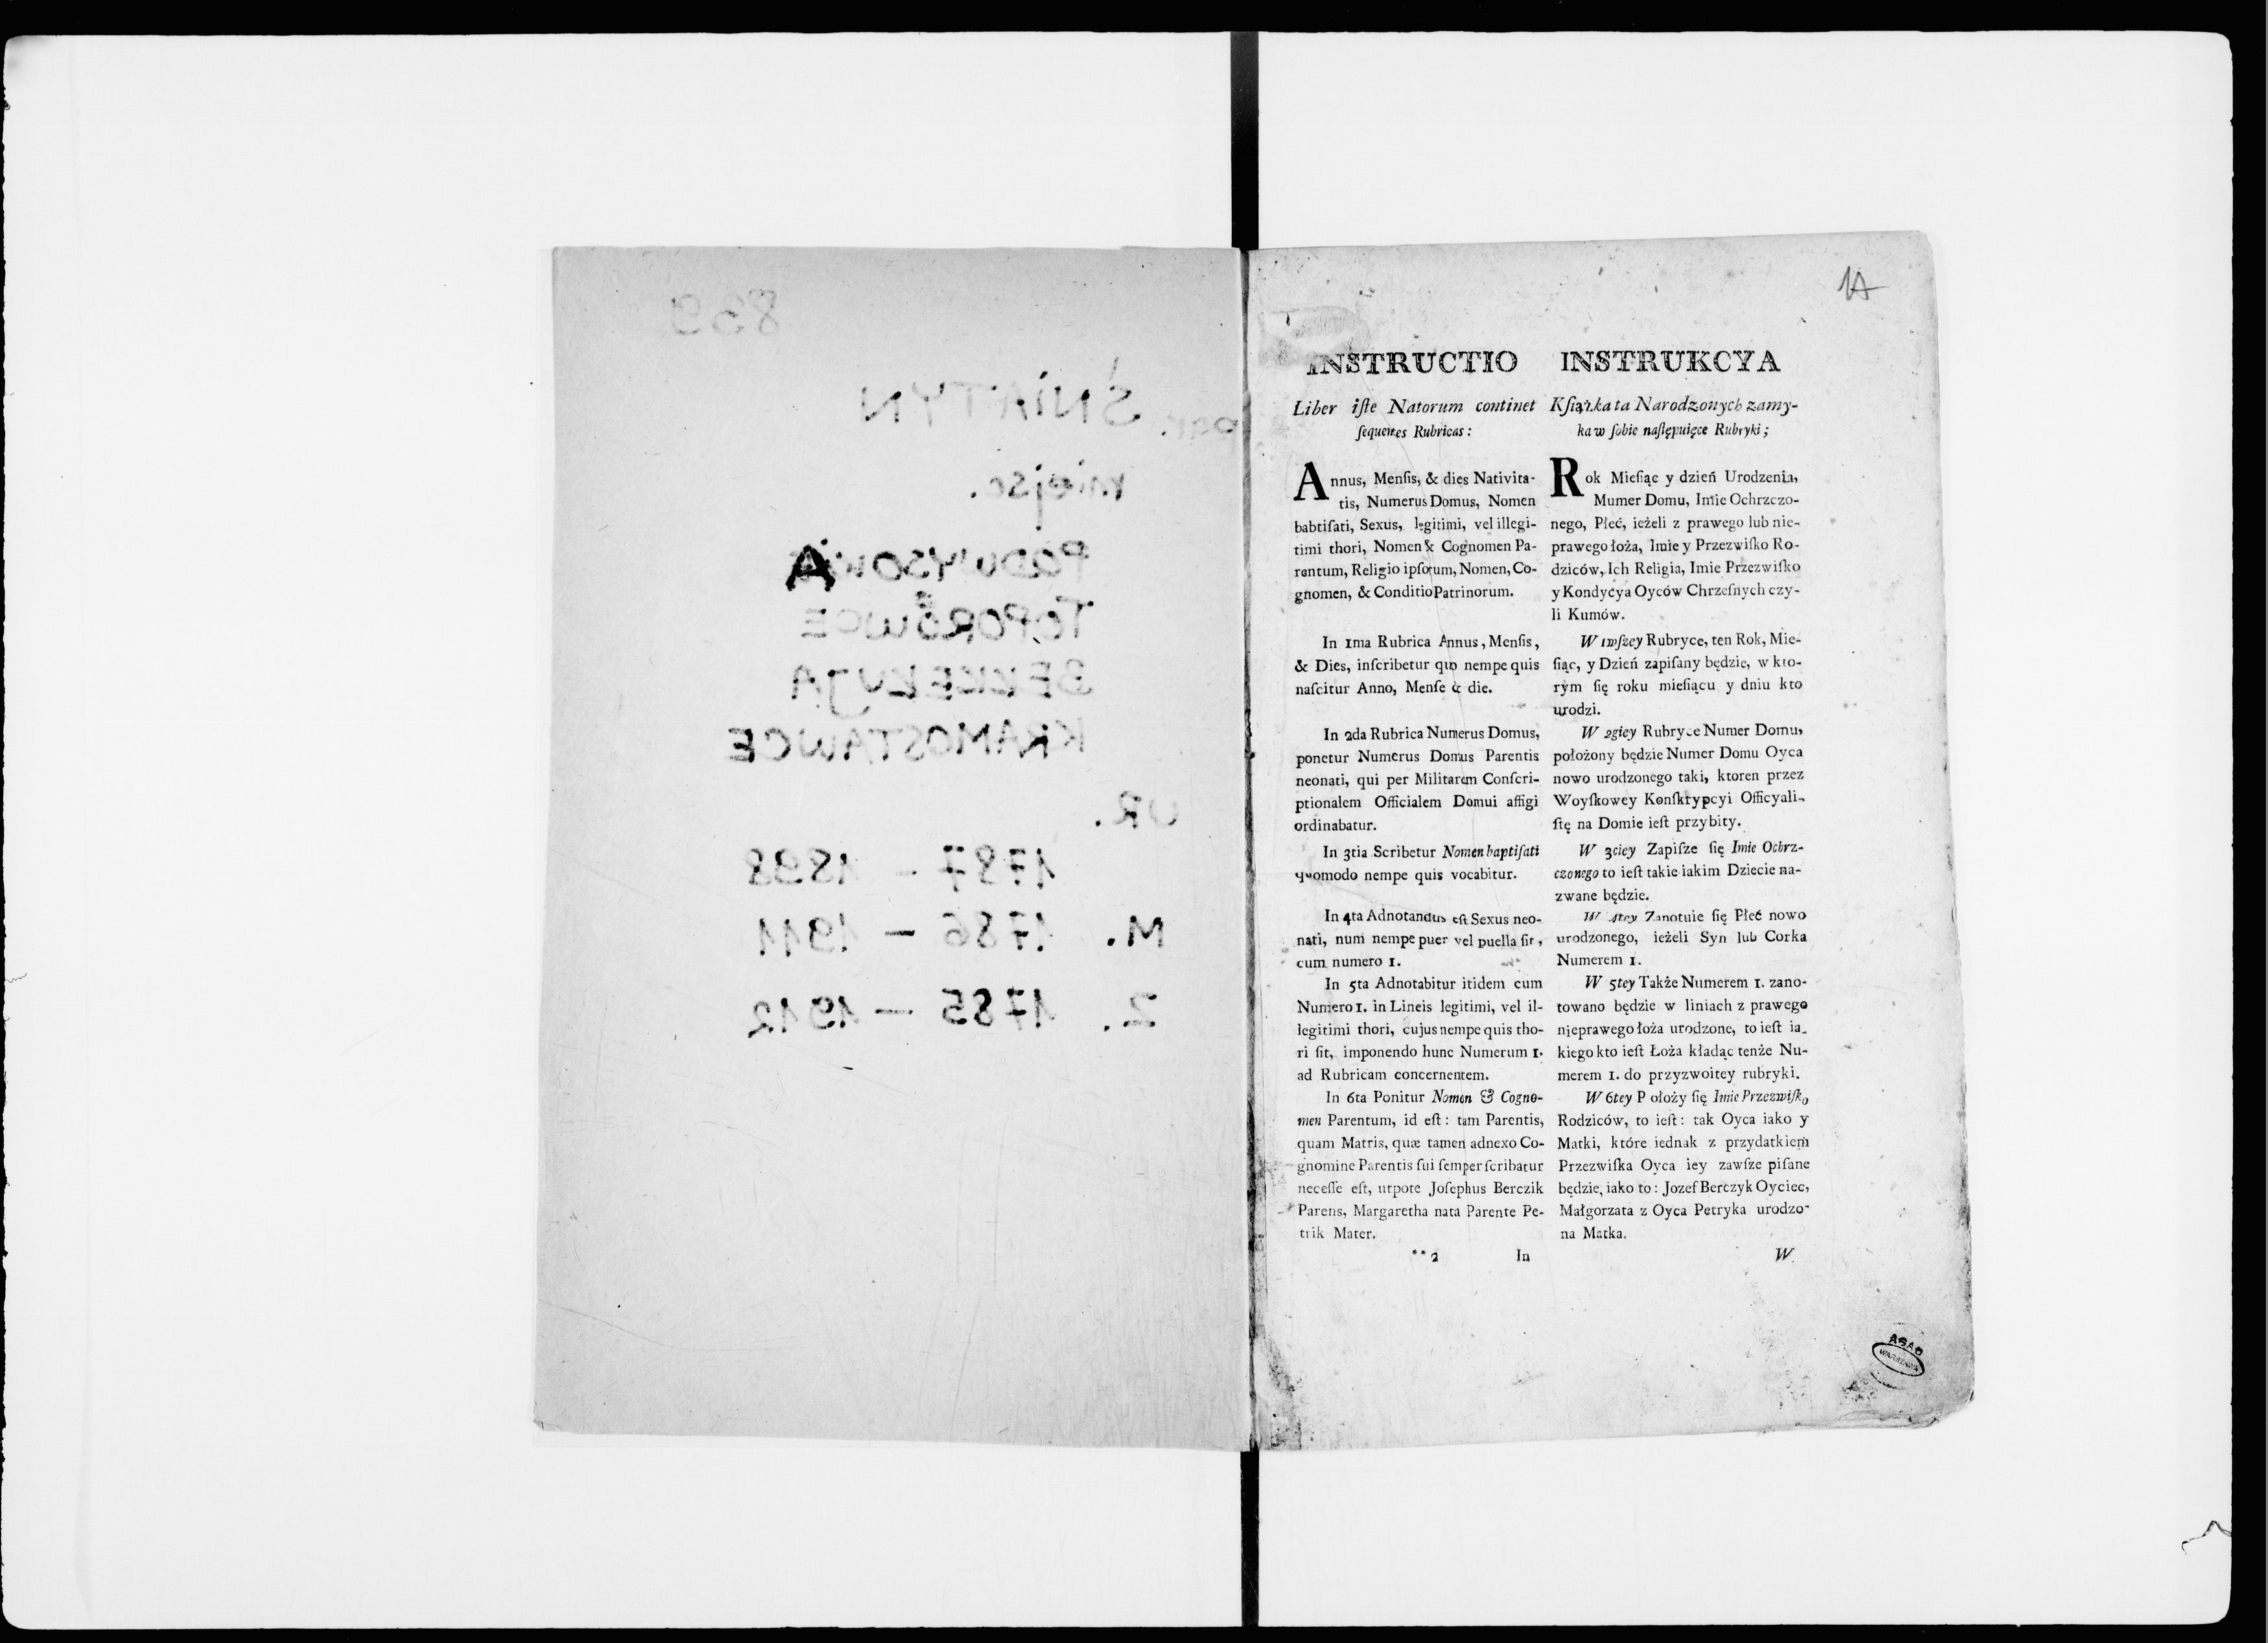 839
par. ŚNIATYN
miejsc.
PODWYSOKA
TOPOROWCE
BEŁŁEŁUJA
KRAMOSTAWCE
UR.
1787 - 1898
M. 1786 - 1911
Z. 1785 - 1912
1A
INSTRUCTIO
Liber iſte Natorum continet
ſequentes Rubricas:
Annus, Menſis, & dies Nativita-
tis, Numerus Domus, Nomen
babtiſati, Sexus, legitimi, vel illegi-
timi thori, Nomen & Cognomen Pa-
rentum, Religio ipſorum, Nomen, Co-
gnomen, & Conditio Patrinorum.
In 1ma Rubrica Annus, Menſis,
& Dies, inſcribetur quo nempe quis
naſcitur Anno, Menſe & die.
In 2da Rubrica Numerus Domus,
ponetur Numerus Domus Parentis
neonati, qui per Militarem Conſcri-
ptionalem Officialem Domui affigi
ordinabatur.
In 3tia Scribetur Nomen baptiſati
quomodo nempe quis vocabitur.
In 4ta Adnotandus eſt Sexus neo-
nati, num nempe puer vel puella ſit,
cum numero 1.
In 5ta Adnotabitur itidem cum
Numero 1. in Lineis legitimi, vel il-
legitimi thori, cujus nempe quis tho-
ri ſit, imponendo hunc Numerum 1.
ad Rubricam concernentem.
In 6ta Ponitur Nomen & Cogno-
men Parentum, id eſt: tam Parentis,
quam Matris, quæ tamen adnexo Co-
gnomine Parentis ſui ſemper ſcribatur
neceſſe eſt, utpote Joſephus Berczik
Parens, Margaretha nata Parente Pe-
trik Mater.
**2 In
INSTRUKCYA
Kſiążka ta Narodzonych zamy-
ka w ſobie naſtępuięce Rubryki;
Rok Mieſiąc y dzień Urodzenia,
Mumer Domu, Imie Ochrzczo-
nego, Płeć, ieżeli z prawego lub nie-
prawego łoża, Imie y Przezwiſko Ro-
dziców, Ich Religia, Imie Przezwiſko
y Kondycya Oyców Chrzeſnych czy-
li Kumów.
W 1wſzey Rubryce, ten Rok, Mie-
ſiąc, y Dzień zapiſany będzie, w kto-
rym ſię roku mieſiącu y dniu kto
urodzi.
W 2giey Rubryce Numer Domu,
położony będzie Numer Domu Oyca
nowo urodzonego taki, ktoren przez
Woyſkowey Konſkrypcyi Officyali-
ſtę na Domie ieſt przybity.
W 3ciey Zapiſze ſię Imie Ochrz-
czonego to ieſt takie iakim Dziecie na-
zwane będzie.
W 4tey Zanotuie ſię Płeć nowo
urodzonego, ieżeli Syn lub Corka
Numerem 1.
W 5tey Także Numerem 1. zano-
towano będzie w liniach z prawego
nieprawego łoża urodzone, to ieſt ia-
kiego kto ieſt Łoża kładąc tenże Nu-
merem 1. do przyzwoitey rubryki.
W 6tey Położy ſię Imie Przezwiſko
Rodziców, to ieſt: tak Oyca iako y
Matki, które iednak z przydatkiem
Przezwiſka Oyca iey zawſze piſane
będzie, iako to: Jozef Berczyk Oyciec,
Małgorzata z Oyca Petryka urodzo-
na Matka.
W
AGAD
WARSZAWA